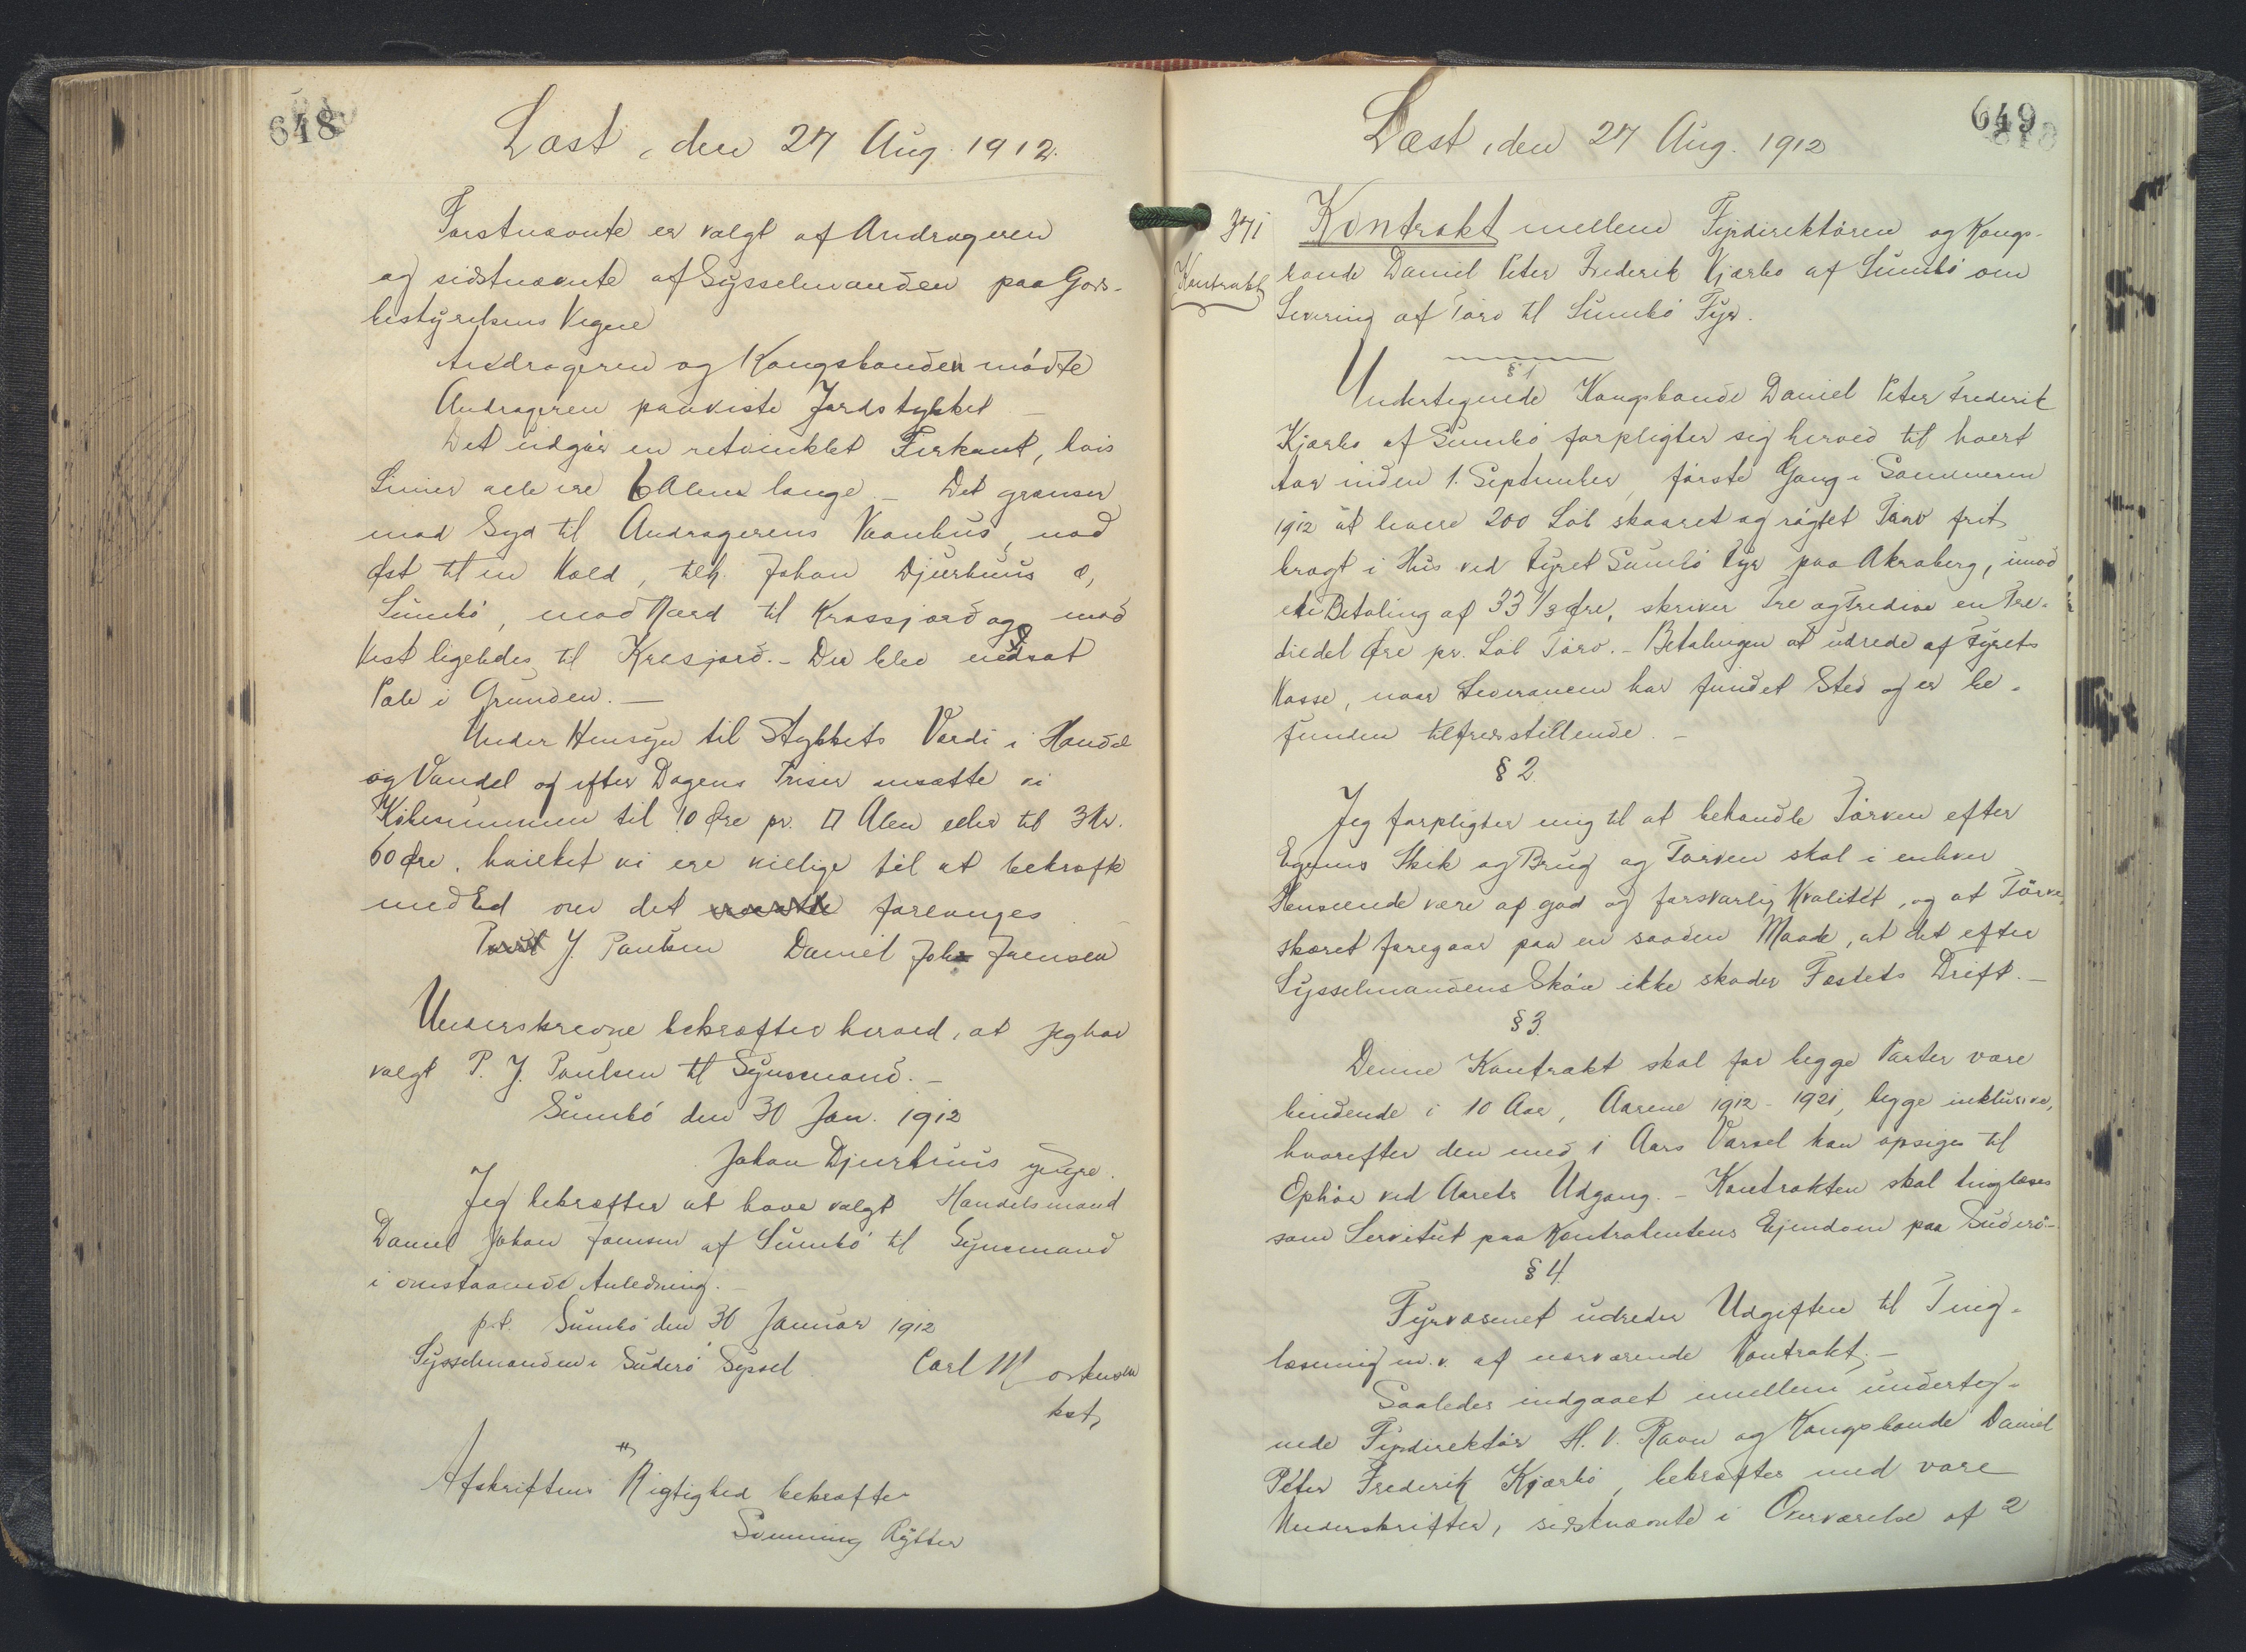 648
Læst, den 27 Aug. 1912.
Førstnævnte er valgt af Andrageren
og sidstnævnte af Sysselmanden paa Jords-
bestyrelsens Vegne
Andrageren og Kongsbonden mødte
Andrageren paaviste Jordstykket —
Det udgør en retvinklet Firkant, hvis
Linier alle ere 6 Alens lange. — Det grænser
mod Syd til Andragerens Vaanhus, mod
Øst til en Kold, tilh. Johan Djurhuus æ,
Sumbö, mod Nord til Krossjord og mod
Vest ligeledes til Krosjord. — Der blev nedsat
Pæle i Grunden. —
Under Hensyn til Stykkets Værdi i Handel
og Vandel og efter Dagens Priser ansatte vi
Købesummen til 10 Øre pr. □ Alen eller til 3 Kr.
60 Øre, hvilket vi ere villige til at bekræfte
med Ed om det forlanges
J. Poulsen Daniel Joh. Joensen
Underskrevne bekræfter herved, at jeg har
valgt P. J. Poulsen til Synsmand. —
Sumbö den 30 Jan. 1912
Johan Djurhuus yngre.
Jeg bekræfter at have valgt Handelsmand
Daniel Johan Joensen af Sumbö til Synsmand
i omstaaende Anledning. —
p.t. Sumbö den 30 Januar 1912
Sysselmanden i Suderö Syssel. Carl Mortensen
kst,
Afskriftens Rigtighed bekræfter
Svenning Rytter
649
Læst, den 27 Aug. 1912
371 Kontrakt mellem Fyrdirektøren og Kongs-
Kontrakt bonde Daniel Peter Frederik Kjærbo af Sumbö om
Levering af Tørv til Sumbö Fyr.
§ 1
Undertegnede Kongsbonde Daniel Peter Frederik
Kjærbo af Sumbö forpligter sig herved til hvert
Aar inden 1. September, første Gang i Sommeren
1912 at levere 200 Løb skaaret og røgtet Tørv frit
bragt i Hus ved Fyret Sumbö Fyr paa Akraberg, imod
en Betaling af 33 1/3 Øre, skriver Tre og Tredive en Tre-
diedel Øre pr. Løb Tørv. — Betalingen at udrede af Fyrets
Kasse, naar Leverancen har fundet Sted og er be-
funden tilfredsstillende. —
§ 2.
Jeg forpligter mig til at behandle Tørven efter
Egnens Skik og Brug og Tørven skal i enhver
Henseende være af god og forsvarlig Kvalitet, og at Tørve-
skæret foregaar paa en saadan Maade, at det efter
Sysselmandens Skøn ikke skader Fæstets Drift. —
§ 3.
Denne Kontrakt skal for begge Parter være
bindende i 10 Aar, Aarene 1912 - 1921, begge inklusive,
hvorefter den med 1 Aars Varsel kan opsiges til
Ophør ved Aarets Udgang. — Kontrakten skal tinglæses
som Servitut paa Kontrahentens Ejendom paa Suderö. —
§ 4.
Fyrvæsenet udreder Udgiften til Ting-
læsning m. v. af nærværende Kontrakt. —
Saaledes indgaaet imellem underteg-
nede Fyrdirektør H. V. Ravn og Kongsbonde Daniel
Peter Frederik Kjærbo, bekræftes med vore
Underskrifter, sidstnævnte i Overværelse af 2